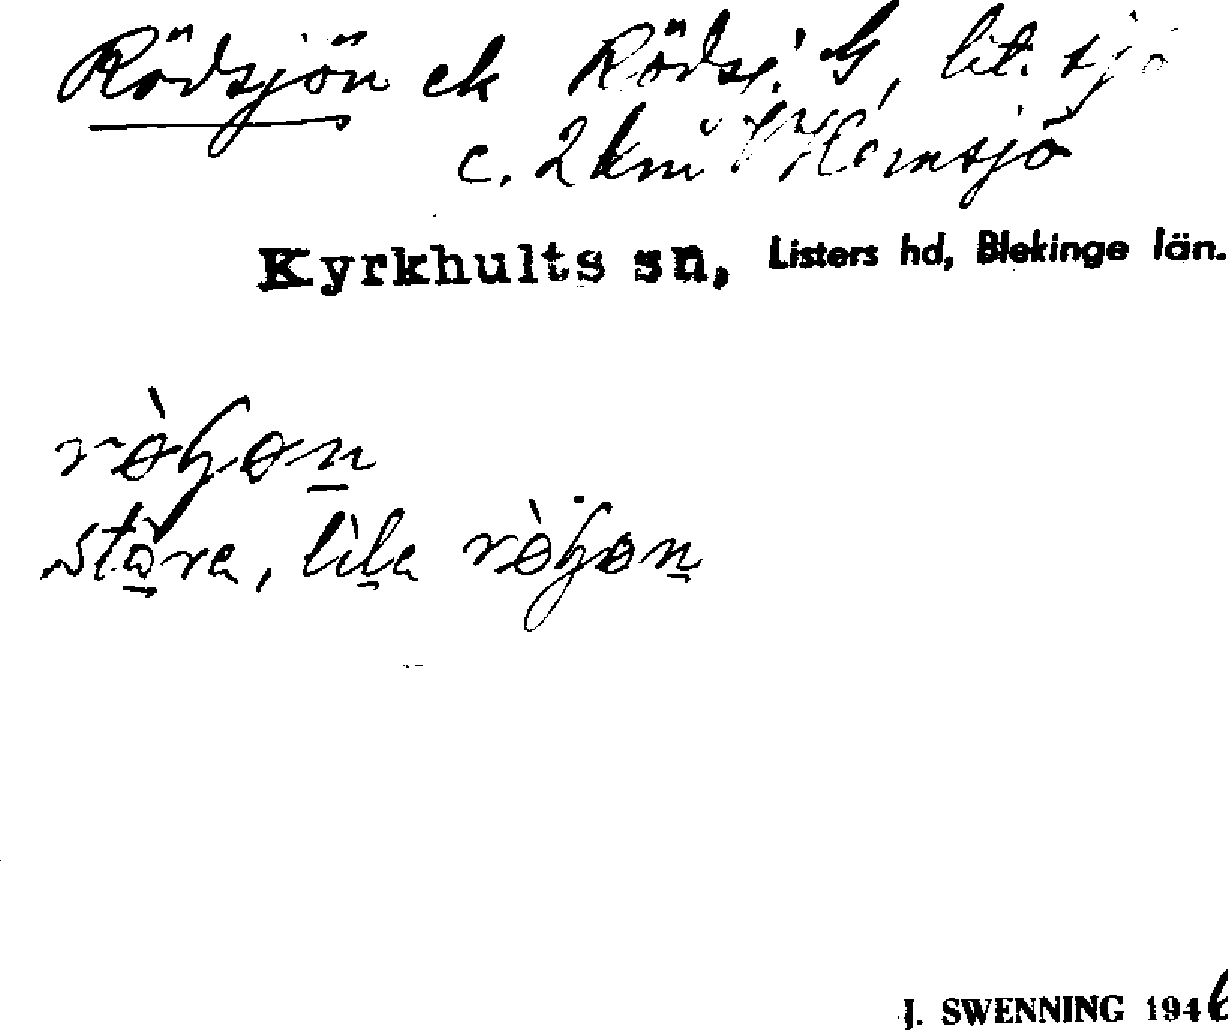 Rödsjön ek Rödsj. G, lit. sjö
c. 2 km Hemsjö
Kyrkhults sn, Listers hd, Blekinge län.
ròɧøn̠
stö̠ra, lìl̠a ròɧøn̠
J. SWENNING 1946